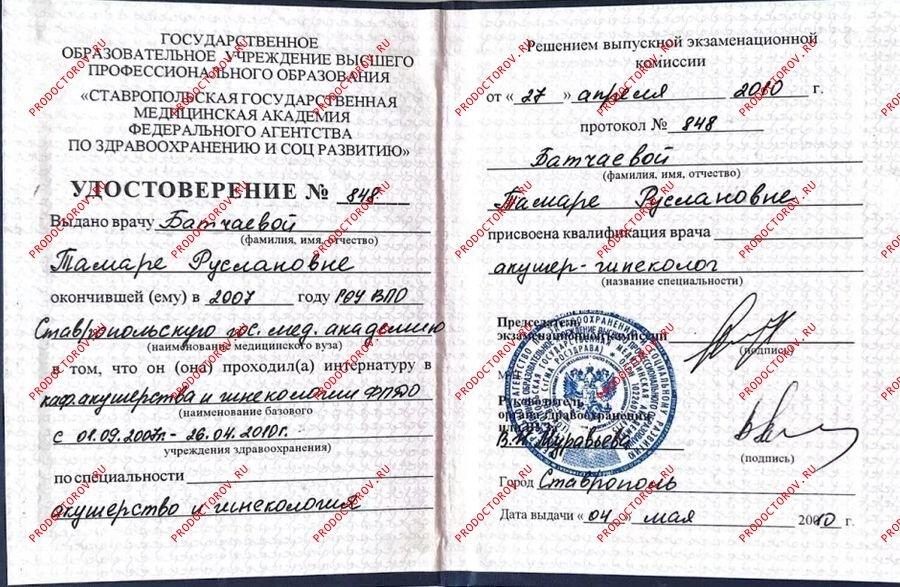 ГОСУДАРСТВЕННОЕ
ОБРАЗОВАТЕЛЬНОЕ УЧРЕЖДЕНИЕ ВЫСШЕГО
ПРОФЕССИОНАЛЬНОГО ОБРАЗОВАНИЯ
«СТАВРОПОЛЬСКАЯ ГОСУДАРСТВЕННАЯ
МЕДИЦИНСКАЯ АКАДЕМИЯ
ФЕДЕРАЛЬНОГО АГЕНТСТВА
ПО ЗДРАВООХРАНЕНИЮ И СОЦ РАЗВИТИЮ»
УДОСТОВЕРЕНИЕ № 848
Выдано врачу Батчаевой
(фамилия, имя, отчество)
Тамаре Руслановне
окончившей (ему) в 2007 году ГОУ ВПО
Ставропольскую гос. мед. академию
(наименование медицинского вуза)
в том, что он (она) проходил(а) интернатуру в
каф. акушерства и гинекологии ФПДО
(наименование базового
с 01.09.2007г. - 26.04.2010г.
учреждения здравоохранения)
по специальности
акушерство и гинекология
Решением выпускной экзаменационной
комиссии
от «27» апреля 2010 г.
протокол № 848
Батчаевой
(фамилия, имя, отчество)
Тамаре Руслановне
присвоена квалификация врача
акушер-гинеколог
(название специальности)
Председатель
экзаменационной комиссии
(подпись)
Руководитель
органа здравоохранения
В.Н. Муравьева
(подпись)
Город Ставрополь
Дата выдачи «04» мая 2010 г.
PRODOCTOROV.RU